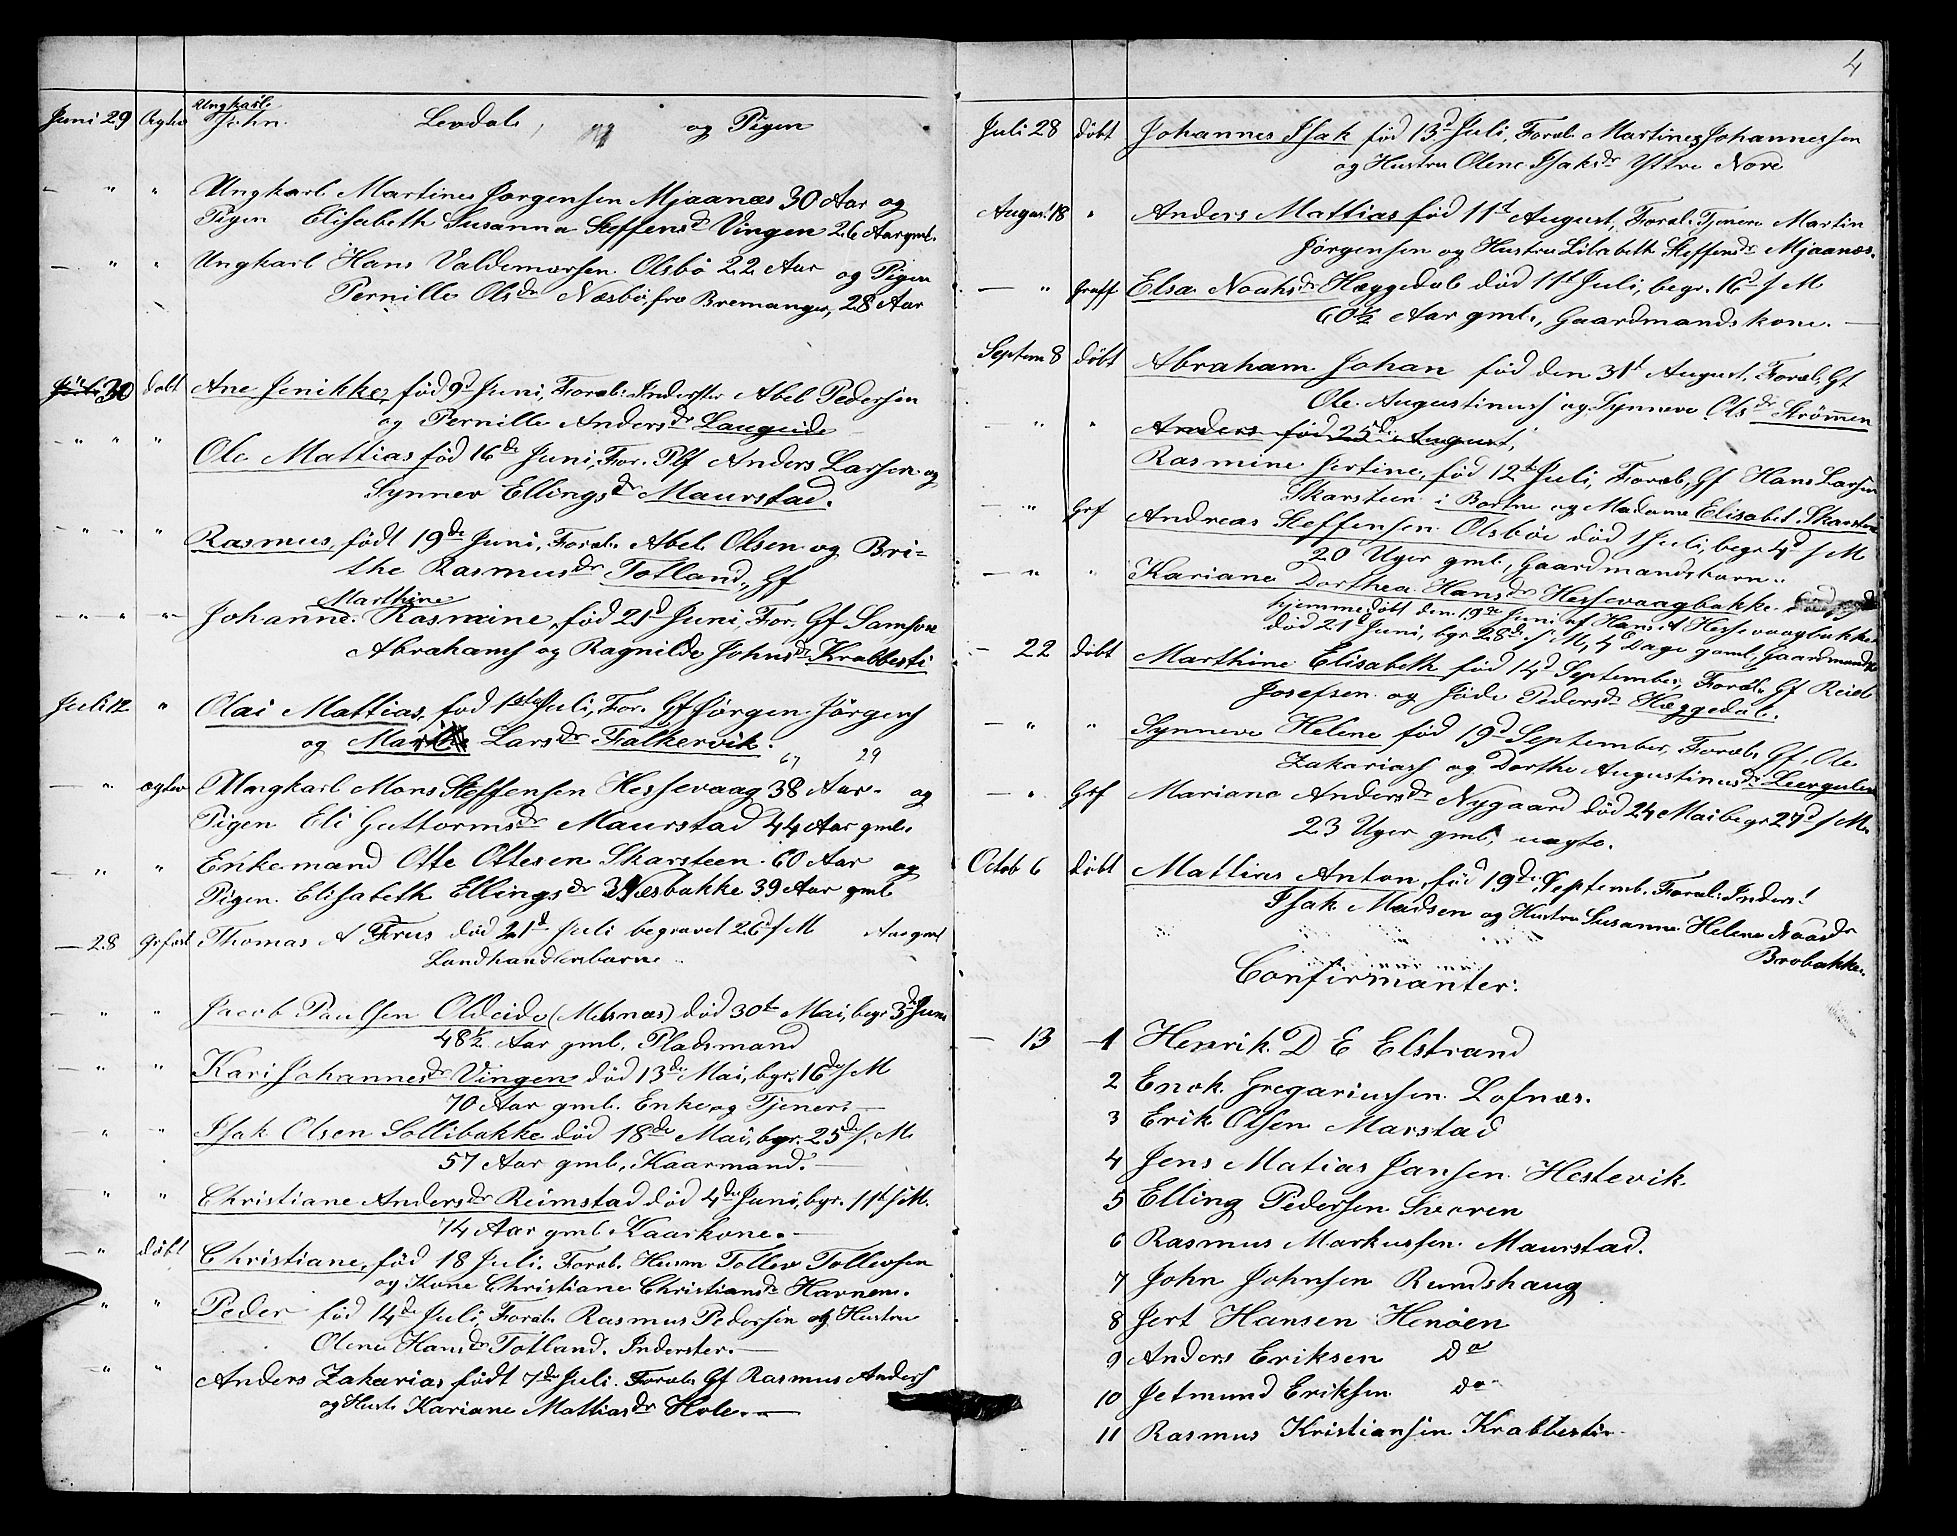 Ungkarl.
Juni 29 Ægtev John. Levdal, og og Pigen
- " " Ungkarl Martines Jørgensen Mjaanæs 30 Aar og
Pigen Elisabeth Susanna Steffensdr Vingen 26 Aar gml.
- " " Ungkarl Hans Valdemarsen Olsbö 22 Aar og Pigen
Pernille Olsdr Næsbö, fra Bremanger, 28 Aar
Juli 30 döbt Ane Jenikke, föd 9d Juni, Foræl. Inderster Abel Pedersen
og Pernille Andersdr Laugeide
" " " Ole Mattias föd 16de Juni, For. Plf Anders Larsen og
Synnev Ellingsdr Maurstad.
- " " " Rasmus, födt 19de Juni, Foræl. Abel Olsen og Bri-
the Rasmusdr Totland, Gf
Marthine
- " " " Johanne. Rasmine, föd 21d Juni, For. Gf Samson
Abrahams og Ragnilde Johnsdr Krabbesti
Juli 12 " Olai Mattias, föd 1ste Juli, For. Gf Jörgen Jörgens
og Larsdr Falkervik.
67 29
- " ægtev Ungkarl Mons Steffensen Hessevaag 38 Aar. og
Pigen Eli Guttormsdr Maurstad 44 Aar gml.
- " " Enkemand Otte Ottesen Skarsteen. 60 Aar og
Pigen. Elisabeth Ellingsdr Næsbakke 39 Aar gml
- 28 Grfæst Thomas A Frus död 21d Juli begravet 26d s M Aar gml
Landhandlerbarn
- " " Jacob Paulsen Oldeide (Melsnæs) död 30te Mai, begr 3d Juni
48½ Aar gml. Pladsmand
- " " Kari Johannesdr Vingen död 13de Mai, bgr. 16de s M
70 Aar gml. Enke og Tjener. -
- " " Isak Olsen Sollibakke död 18de Mai, bgr. 25de s. M.
57 Aar gml, Kaarmand. -
- " " Christiane Andersdr Reimstad död 4de Juni, bgr. 11te s M.
74 Aar gml. Kaarkone. -
- " döbt Christiane, föd 18 Juli. Foræl. Husm Tollev Tollevsen
og Kone Christiane Christiansdr Havnen.
- " " Peder föd 14de Juli, Foræl. Rasmus Pedersen og Hustru
Olene Hansdr Totland. Inderster. -
- " " Anders Zakarias födt 7de Juli. Foræl. Gf Rasmus Anders
og Hust. Kariane Mattiasdr Hole. -
4
Juli 28 döbt Johannes Isak föd 13d Juli, Foræl. Martines Johannessen
og Hustru Olene Isaksdr Yttre Nore
August. 18 " Anders Mattias föd 11t August, Foræl. Tjener Martin
Jörgensen og Hustru Lisabeth Steffensdr Mjaanæs.
- " Graff Elsa Noahsdr Hæggedal död 11te Juli, begr. 16d s M
60½ Aar gml., Gaardmandskone. -
Septem 8 döbt Abraham Johan föd den 31t August, Foræl. Gf
Ole Augustinuss og Synneve Olsdr Strömmen
- " " Anders föd 25de August,
Rasmine Jertine, föd 12te Juli, Foræl. Gf Hans Larsen
Skarsteen i Bortne og Madame Elisabet Skarsten
- " Grf Andreas Steffensen Olsböe död 1 Juli, begr 4d s M
20 Uger gml, Gaardmandsbarn.
- " " Kariane Dorthea Hansdr Hessevaagbakke
hjemmedöbt den 19de Juni af Hans A Hessevaagbakke
död 21d Juni, bgr 28de s. M, 4 Dage gaml, Gaardmandsb
- 22 döbt Marthine Elisabeth föd 14d September, Foræl. Gf Reid
Josefsen og Jöde Pedersdr Hæggedal.
- " " Synneve Helene föd 19d September, Foræl. Gf. Ole
Zakariass og Dorthe Augustinusdr Leergulen
- " Grf Mariane Andersdr Nygaard död 24 Mai begr 27d s M.
23 Uger gml, uægte.
Octob 6 döbt Mattias Anton, föd 19de Septemb. Foræl: Inders!
Isak Madsen og Hustru Susanne Helene Noasdr
Brobakke.
Confirmanter:
- 13 - 1 Henrik D E Elstrand
2 Enok Gregariussen Lofnæs.
3 Erik Olsen Marstad
4 Jens Matias Jansen Hestevik.
5 Elling Pedersen Svoren
6 Rasmus Markussen Maurstad.
7 John Johnsen Rundshaug
8 Jert Hansen Henöen
9 Anders Eriksen Do
10 Jetmund Eriksen Do
11 Rasmus Kristiansen Krabbestie